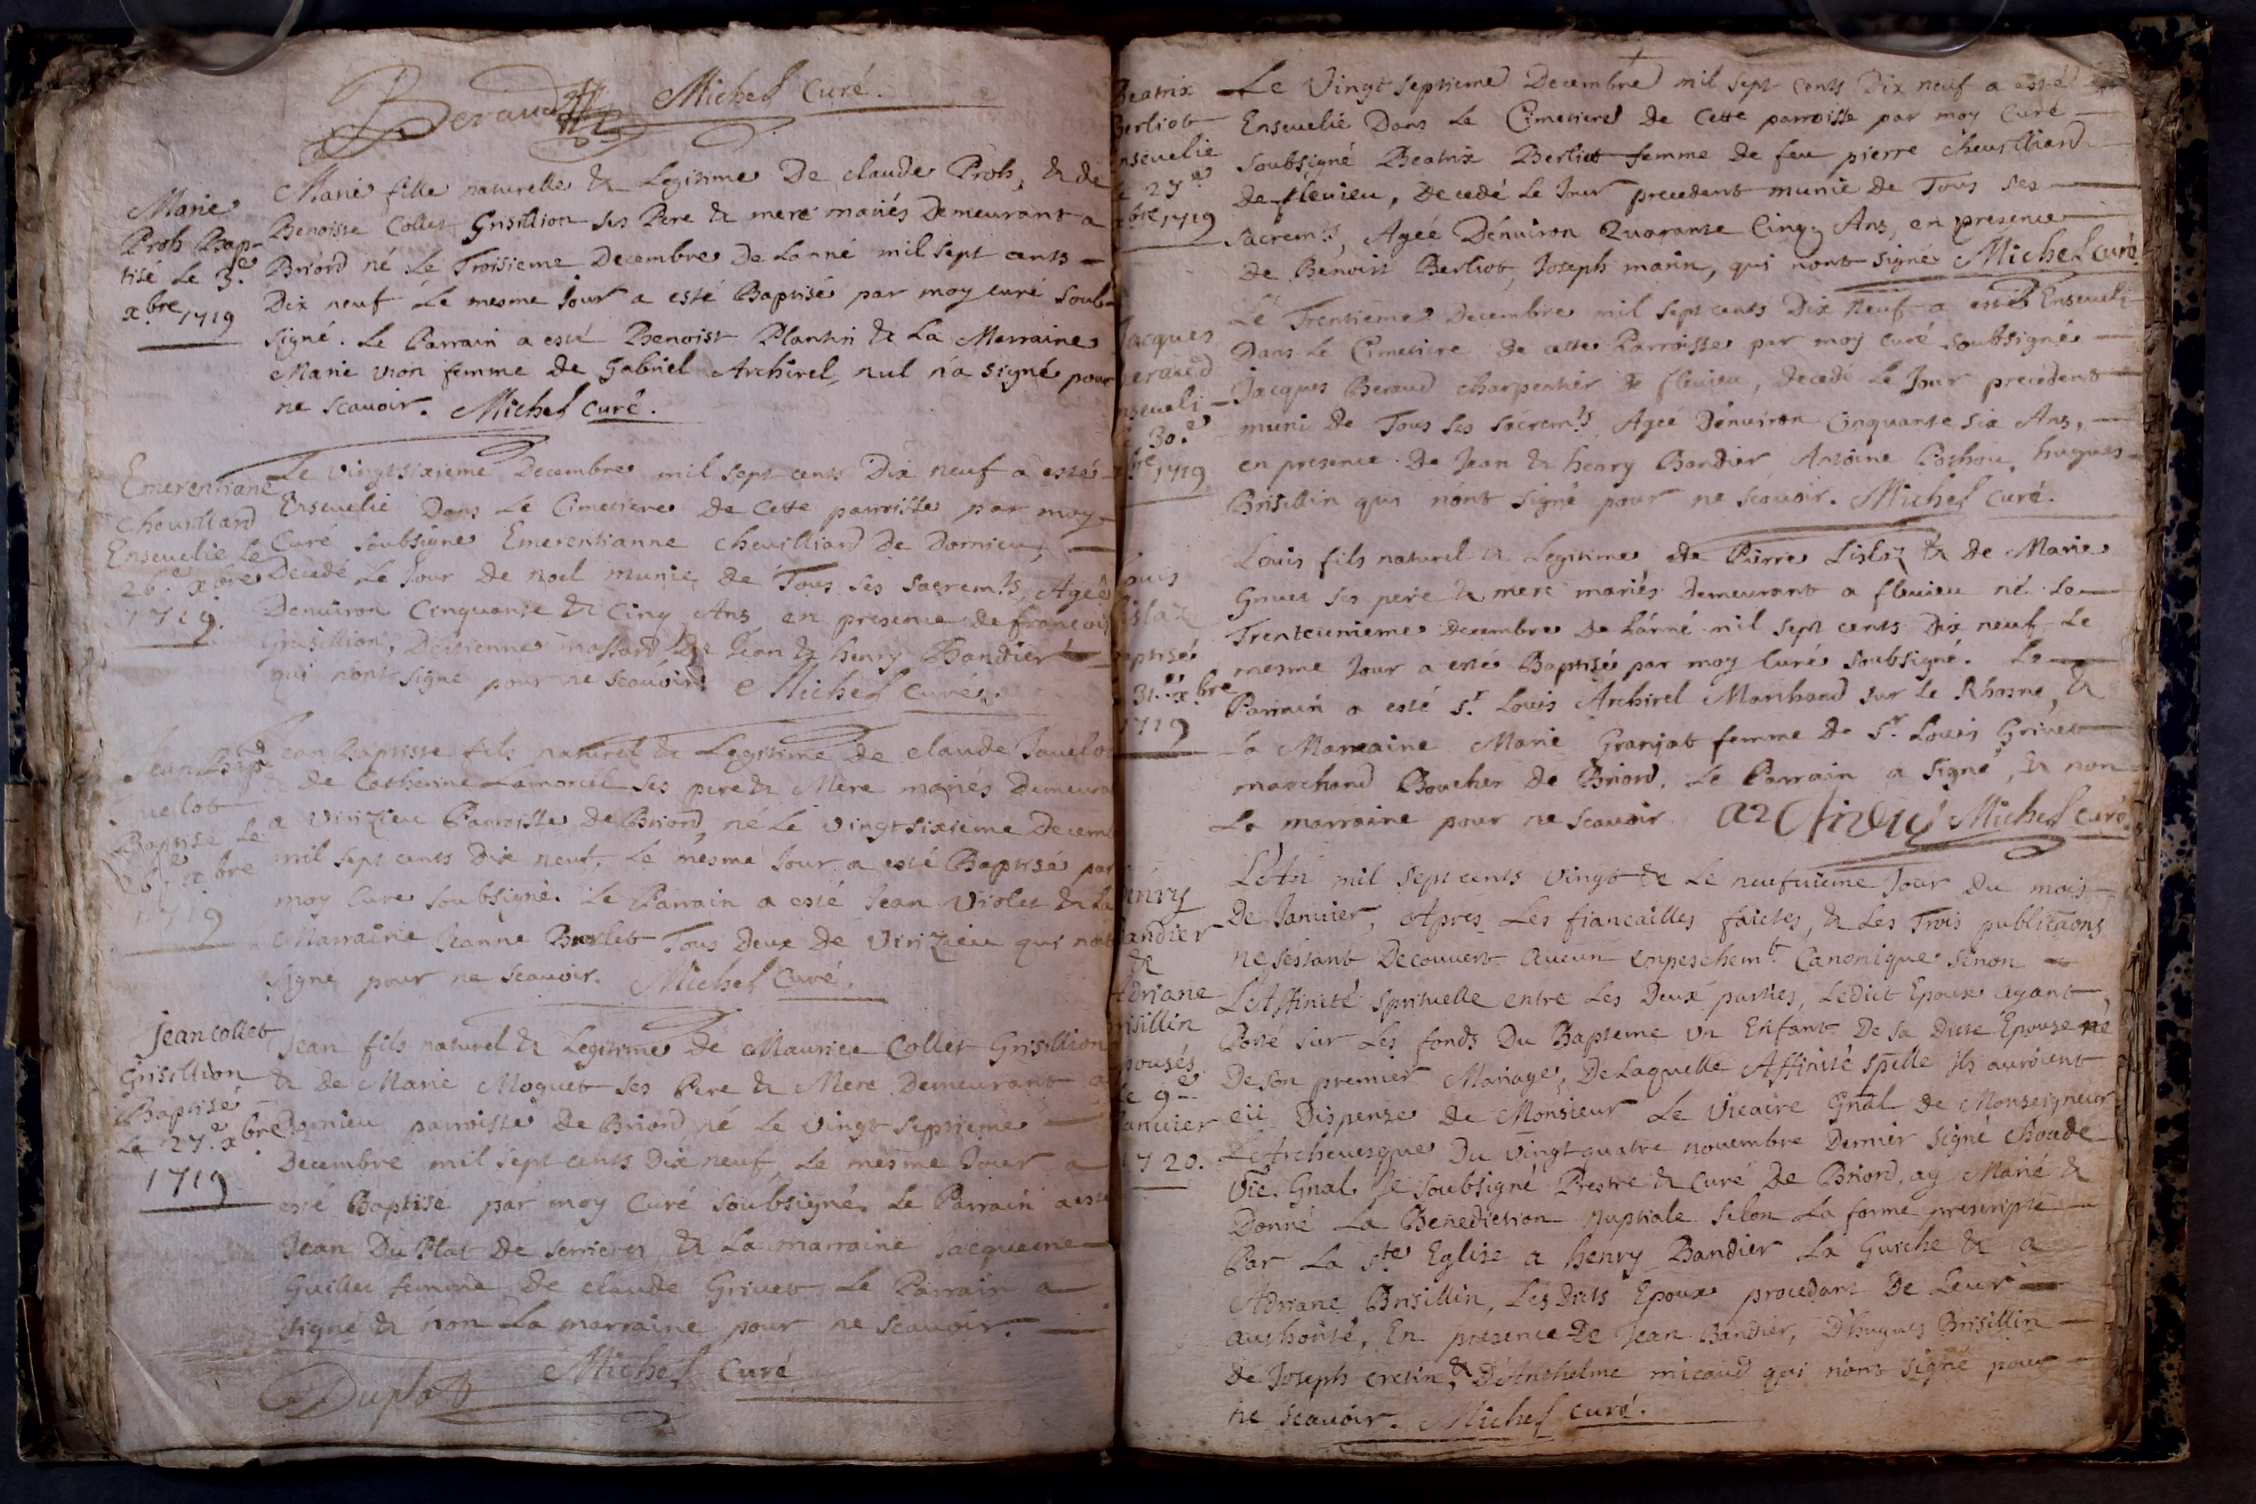 Beraud Michel Curé.
Marie
Prost Bap-
tisé Le 3.e
xbre 1719
Marie fille naturelle & Legitime De claude Prost, & de
Benoiste Collet Grisillion ses Pere & mere mariés Demeurant a
Briord né Le Troisieme Decembre De Lanné mil sept cents
Dix neuf Le mesme Jour a esté Baptisé par moy curé soub-
signé. Le Parrain a esté Benoist Plantin & La Marraine
Marie vion femme de Gabriel Archirel, nul n'a signé pour
ne scavoir. Michel Curé.
Emerentiane
Chevilliard
Ensevelie Le
26.e xbre
1719.
Le vingtsixieme Decembre mil sept cents Dix neuf a esté
Ensevelie Dans Le Cimetiere De Cette parroisse par moy
Curé soubsigné Emerentianne chevilliard De Dornieu,
Decedé Le Jour de noel munie de Tous ses sacrem.ts, Ageé
Denviron Cinquante & Cinq Ans en presence de francois
Grisillion, Destienne massard & Jean & henry Bandier
qui nont signé pour ne scavoir. Michel Curé.
Jean Bap.t
Juvelot
Baptisé Le
26.e xbre
1719
Jean Baptiste fils naturel & Legitime De claude Juvelot
& de Catherine Lamorcel ses pere & Mere mariés Demeura
a virizieu Parroisse De Briord, né Le vingtsixieme Decem
mil sept cents Dix neuf, Le mesme Jour a esté Baptisé par
moy Curé soubsigné. Le Parrain a esté Jean violet & La
Marraine Jeanne Burlet Tous Deux De virizieu qui nont
signé pour ne scavoir. Michel Curé.
Jean collet
Grisillion
Baptisé
Le 27.e xbre
1719
Jean fils naturel & Legitime De Maurice Collet Grisillion
& de Marie Moquet ses Pere & Mere Demeurant a
Dornieu parroisse De Briord, né Le vingt septieme
Decembre mil sept cents Dix neuf, Le mesme Jour a
esté Baptisé par moy Curé soubsigné. Le Parrain a esté
Jean Du Plat De serrieres & La marraine Jacqueme
Guillet femme de claude Grivet Le Parrain a
signé & non La marraine pour ne scavoir.
Duplat Michel Curé
Beatrix
Berliot
nsevelie
27e
bre 1719
Le Vingt septieme Decembre mil sept cents Dix neuf a esté
Ensevelie Dans Le Cimetiere De Cette parroisse par moy Curé
soubsigné Beatrix Berliot femme de feu pierre chevilliard
de flevieu, Decedé Le Jour precedent munie de Tous ses
sacrem.ts, Ageé Denviron Quarante Cinq Ans, en presence
de Benoist Berliot, Joseph marin, qui nont signé Michel Curé.
Jacques
eraud
nseveli
30.e
bre 1719
Le Trentieme Decembre mil sept cents Dix Neuf a esté Enseveli
Dans Le Cimetiere de cette Parroisse par moy curé soubsigné
Jacques Beraud charpentier de flevieu, Decedé Le Jour precedent
muni De Tous ses sacrem.ts Ageé Denviron Cinquante six Ans,
en presence De Jean & henry Bandier Antoine Pochou, hugues
Brisillin qui n'ont signé pour ne scavoir. Michel Curé.
ouis
islaz
aptisé
31.e xbre
1719
Louis fils naturel & Legitime, de Pierre Lislaz & de Marie
Grivet ses pere & mere mariés Demeurant a flevieu né Le
Trenteunieme Decembre De L'anné mil sept cents Dix neuf Le
mesme Jour a esté Baptisé par moy Curé soubsigné. Le
Parrain a esté s.r Louis Archirel Marchand sur Le Rhosne, &
La Marraine Marie Granjat femme De s.r Louis Grivet
marchand Boucher De Briord. Le Parrain a signé, & non
La marraine pour ne scavoir Michel Curé.
enry
andier
&
Adriane
risillin
pousés
Le 9e
anvier
1720.
L'An mil sept cents vingt & Le neufuieme Jour Du mois
De Janvier, Apres Les fiancailles faictes, & Les Trois publicãons
ne sestant Decouvert aucun enpeschem.t Canonique sinon
L'Affinité spirituelle entre Les Deux parties, Ledict Epoux ayant
Porté sur Les fonds Du Bapteme un Enfant De sa Dicte Epouse né
De son premier Mariage, De Laquelle Affinité spelle Ils auroient
eü Dispense de Monsieur Le Vicaire Gnal de Monseigneur
L'Archevesque Du vingt quatre novembre Dernier signé
Vic. Gnal. Je soubsigné Prestre & Curé De Briord, ay Marié &
Donné La Benediction nuptiale selon La forme prescripte
Par La ste Eglise a henry Bandier La Guiche & a
Adriane Brisillin, Les Dicts Epoux procedant De Leur
authorité, En presence De Jean Bandier, D'hugues Brisillin
de Joseph cretin, & D'Anthelme micaud qui n'ont signé pour
ne scavoir. Michel Curé.